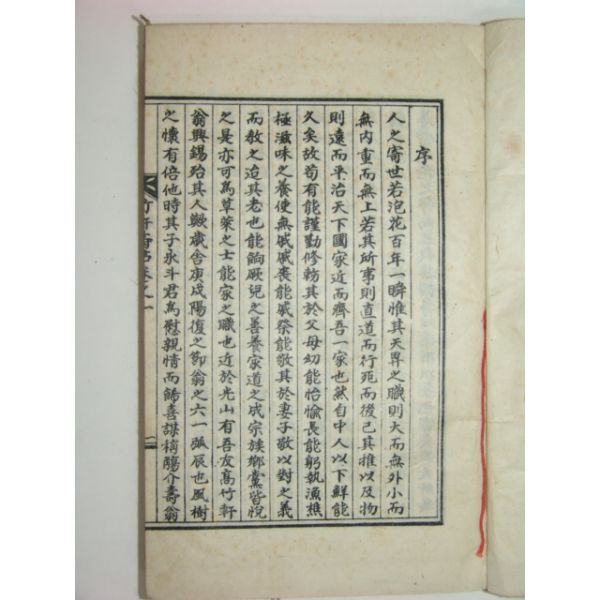 序
人之寄世若泡花百年一瞬惟其天畀之職則大而無外小而
無內重而無上若其所事則直道而行死而後已其推以及物
則遠而平治天下國家近而齊吾一家也然自中人以下鮮能
久矣故苟有能謹勤修軄其於父母幼能怡愉長能躬執漁樵
極滋味之養使無戚戚喪能戚祭能敬其於妻子敬以對之義
而敎之迨其老也能餉厥兒之善養家道之成宗族鄕黨皆悅
之是亦可爲草萊之士能家之職也近於光山有吾友高竹軒
翁興錫殆其人歟歲舍庚戌陽復之節翁之六一弧辰也風樹
之懷有倍他時其子永斗君爲慰親情而飾喜謀稱觴介壽翁
竹軒壽帖卷之一